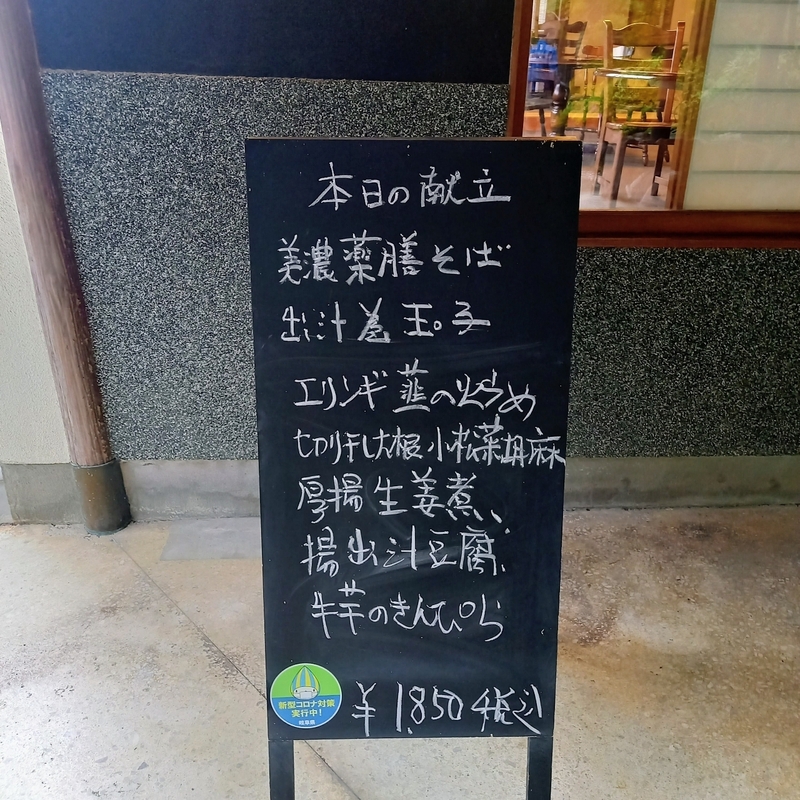 本日の献立
美濃薬膳そば
出汁巻玉子
エリンギ韮の炒め
切り干し大根小松菜胡麻
厚揚生姜煮、
揚出汁豆腐
牛芋のきんぴら
新型コロナ対策
実行中!
岐阜県
¥1,850税込